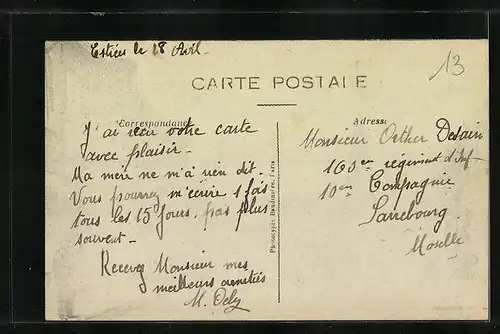 le 18 Avril -
13
CARTE POSTALE
Correspondance
Adresse
J'ai reçu votre carte
avec plaisir -
Ma mère ne m'a rien dit
Vous pourrez m'écrire 1 fois
tous les 15 jours, pas plus
souvent -
Recevez Monsieur mes
meilleurs amitiés
M.
Monsieur Desain
160em régiment d'Inf
10em Compagnie
Sarrebourg
Moselle
Phototypie Paris